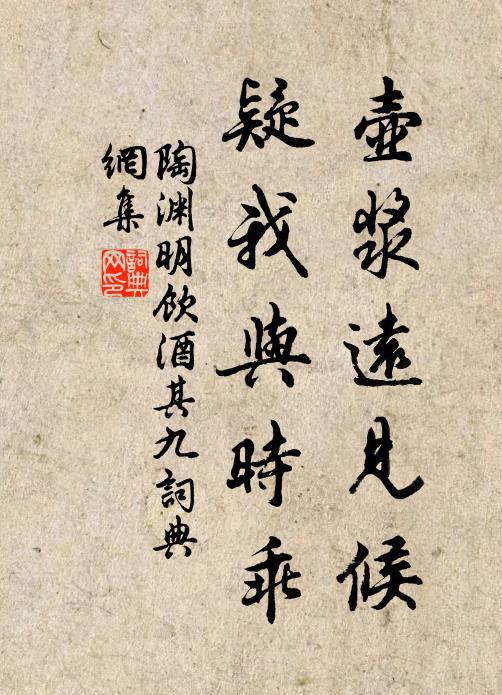 壺漿遠見候
疑我與時乖
陶渊明飲酒其九詞典
網集
詞典
网印